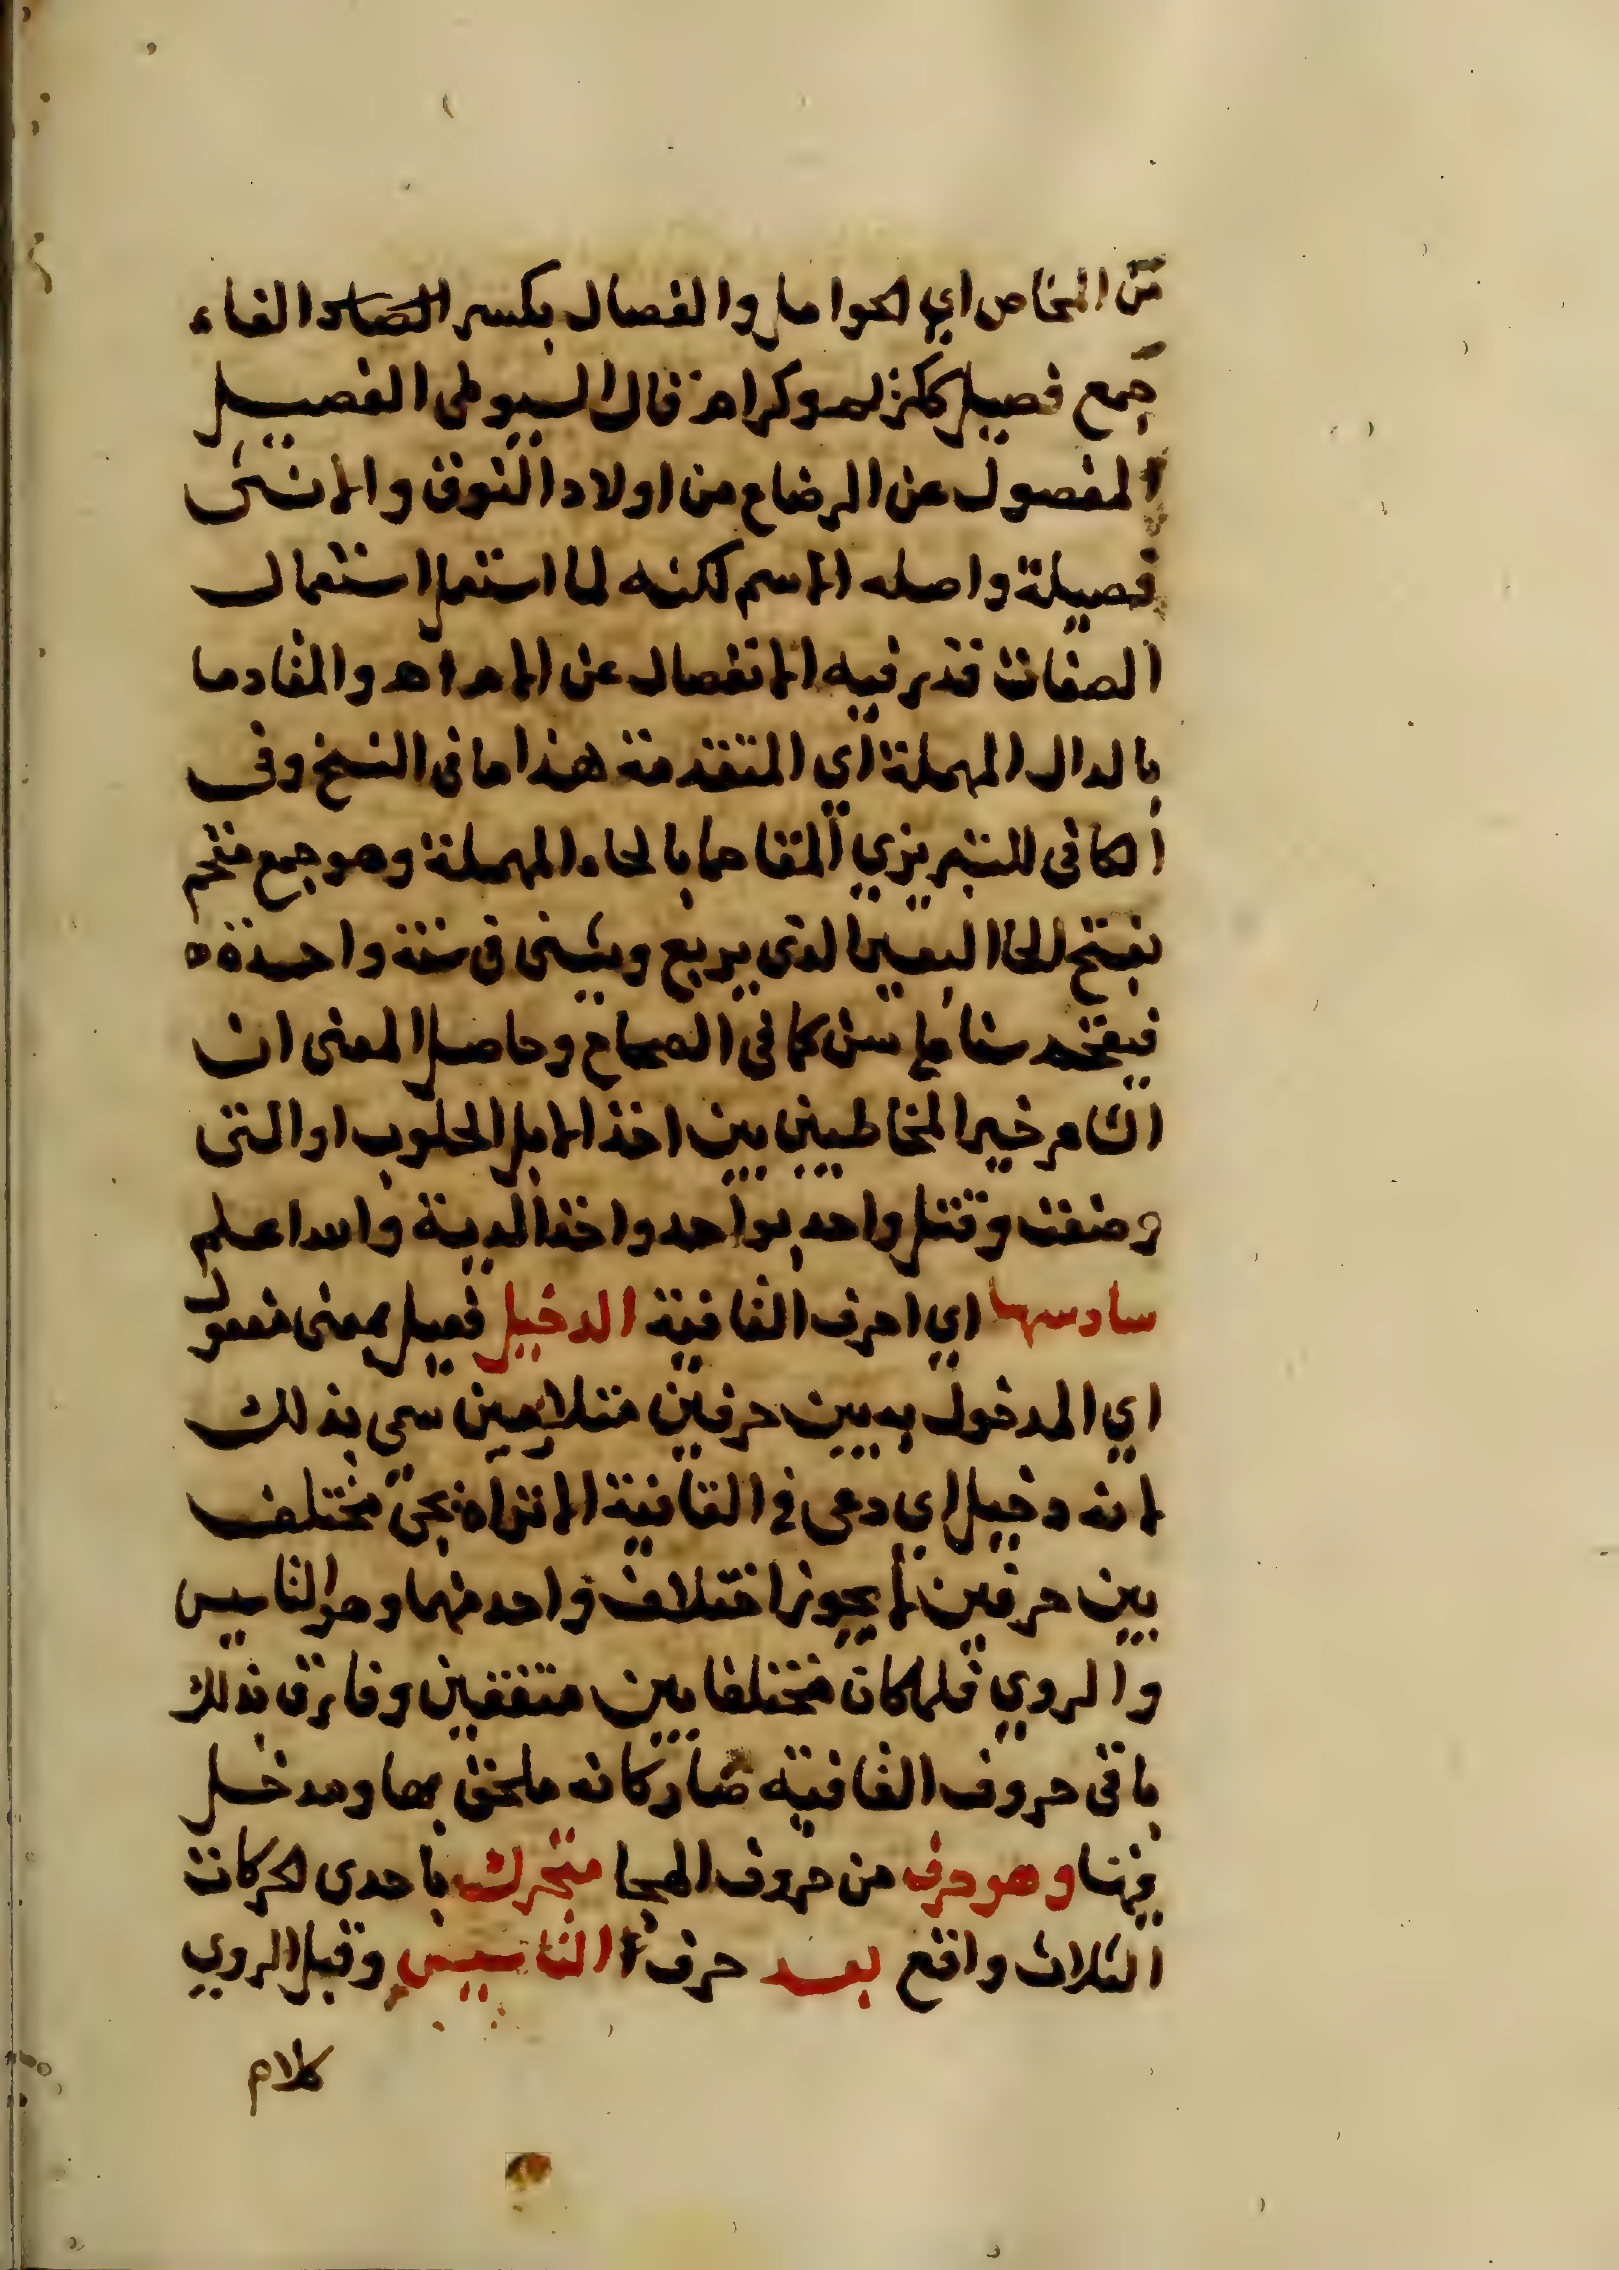 من المخاض اي الحوامل والفصال بكسر الفاء
جمع فصيل ككريم وكرام قال السيوطى الفصيل
المفصول عن الرضاع من اولاد النوق والانثى
فصيلة واصله الاسم لكنه لما استعمل استعمال
الصفات قدر فيه الانفصال عن الام اه والمقادما
بالدال المهملة اي المتقدمة هذا ما في النسخ وفى
الكافى للتبريزي المقاحما بالحاء المهملة وهو جمع مقحم
بفتح الحا البعير الذى يربع ويثنى فى سنة واحدة ه
فيقتحم سنا على سن كما فى الصحاح وحاصل المعنى ان
الشاعر خير المخاطبين بين اخذ الابل الحلوب او التى
وضعت وقتل واحد بواحد واخذ الدية والله اعلم
سادسها اي احرف القافية الدخيل فعيل بمعنى مفعول
اي المدخول به بين حرفين متلازمين سمي بذلك
لانه دخيل اي دعى في القافية الا تراه يجئ مختلف
بين حرفين لا يجوز اختلاف واحد منهما وهو التاسيس
والروي فلما كان مختلفا بين متفقين وفارق بذلك
باقى حروف القافية صار كانه ملحق بها ومدخل
فيها وهو حرف من حروف الهجا متحرك باحدى الحركات
الثلاث واقع بعد حرف التاسيس وقبل الروي
كلام